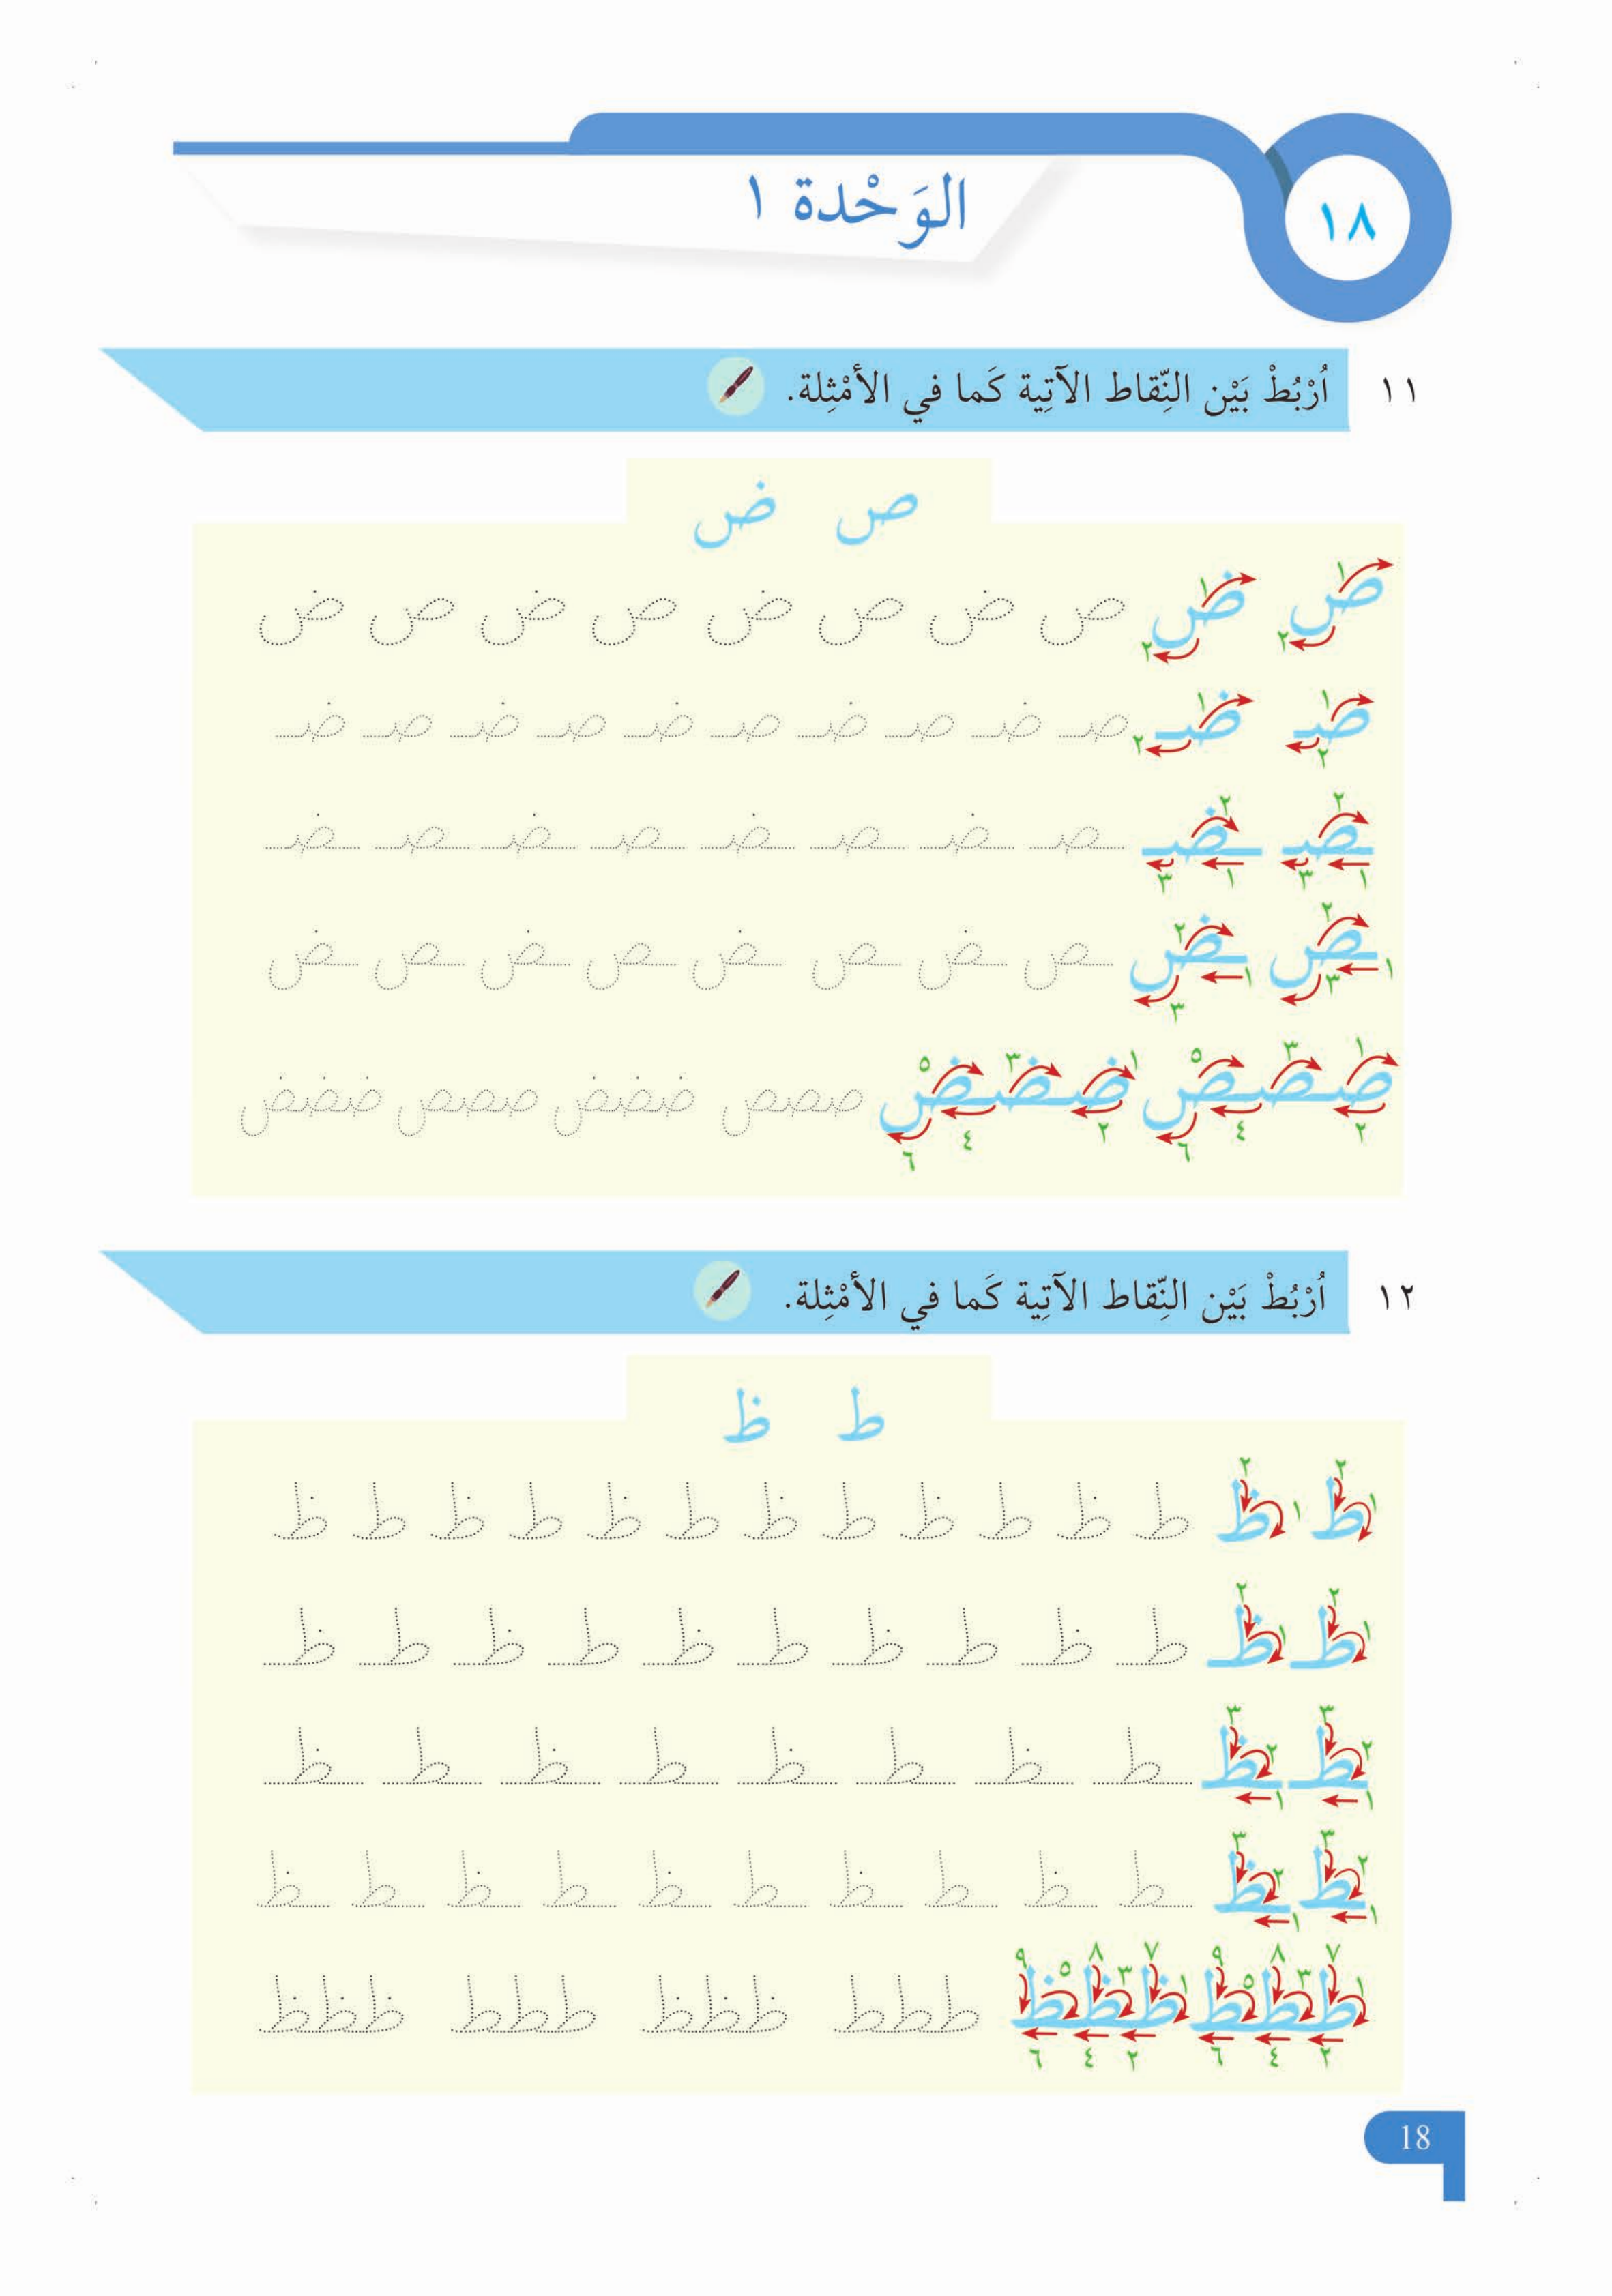 ١٨
الوَحْدة ١
١١ اُرْبُطْ بَيْن النِّقاط الآتِية كَما في الأمْثِلة.
ص ض
ص ض ص ض ص ض ص ض ص ض
صـ ضـ صـ ضـ صـ ضـ صـ ضـ صـ ضـ صـ ضـ
ـصـ ـضـ ـصـ ـضـ ـصـ ـضـ ـصـ ـضـ ـصـ ـضـ
ـص ـض ـص ـض ـص ـض ـص ـض ـص ـض
صصص ضضض صصص ضضض صصص ضضض
١٢ اُرْبُطْ بَيْن النِّقاط الآتِية كَما في الأمْثِلة.
ط ظ
ط ظ ط ظ ط ظ ط ظ ط ظ ط ظ ط ظ
طـ ظـ طـ ظـ طـ ظـ طـ ظـ طـ ظـ طـ ظـ
ـطـ ـظـ ـطـ ـظـ ـطـ ـظـ ـطـ ـظـ ـطـ ـظـ
ـط ـظ ـط ـظ ـط ـظ ـط ـظ ـط ـظ ـط ـظ
ططط ظظظ ططط ظظظ ططط ظظظ
18